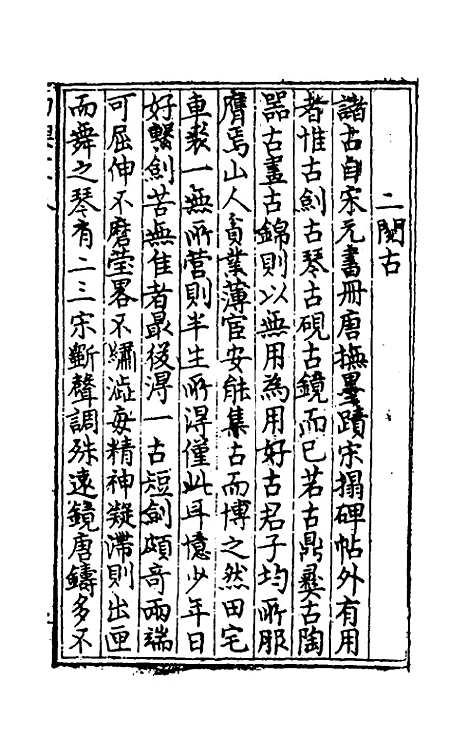 二閱古
諸古自宋元書冊唐撫墨蹟宋搨碑帖外有用
者惟古劍古琴古硯古鏡而已若古鼎彝古陶
器古畫古錦則以無用為用好古君子均所服
膺焉山人貧業薄宦安能集古而博之然田宅
車裘一無所營則半生所得僅此耳憶少年日
好擊劍苦無佳者最後得一古短劍頗奇兩端
可屈伸不磨瑩畧不繡澁每精神凝滯則出匣
而舞之琴有二三宋斵聲調殊遠鏡唐鑄多不